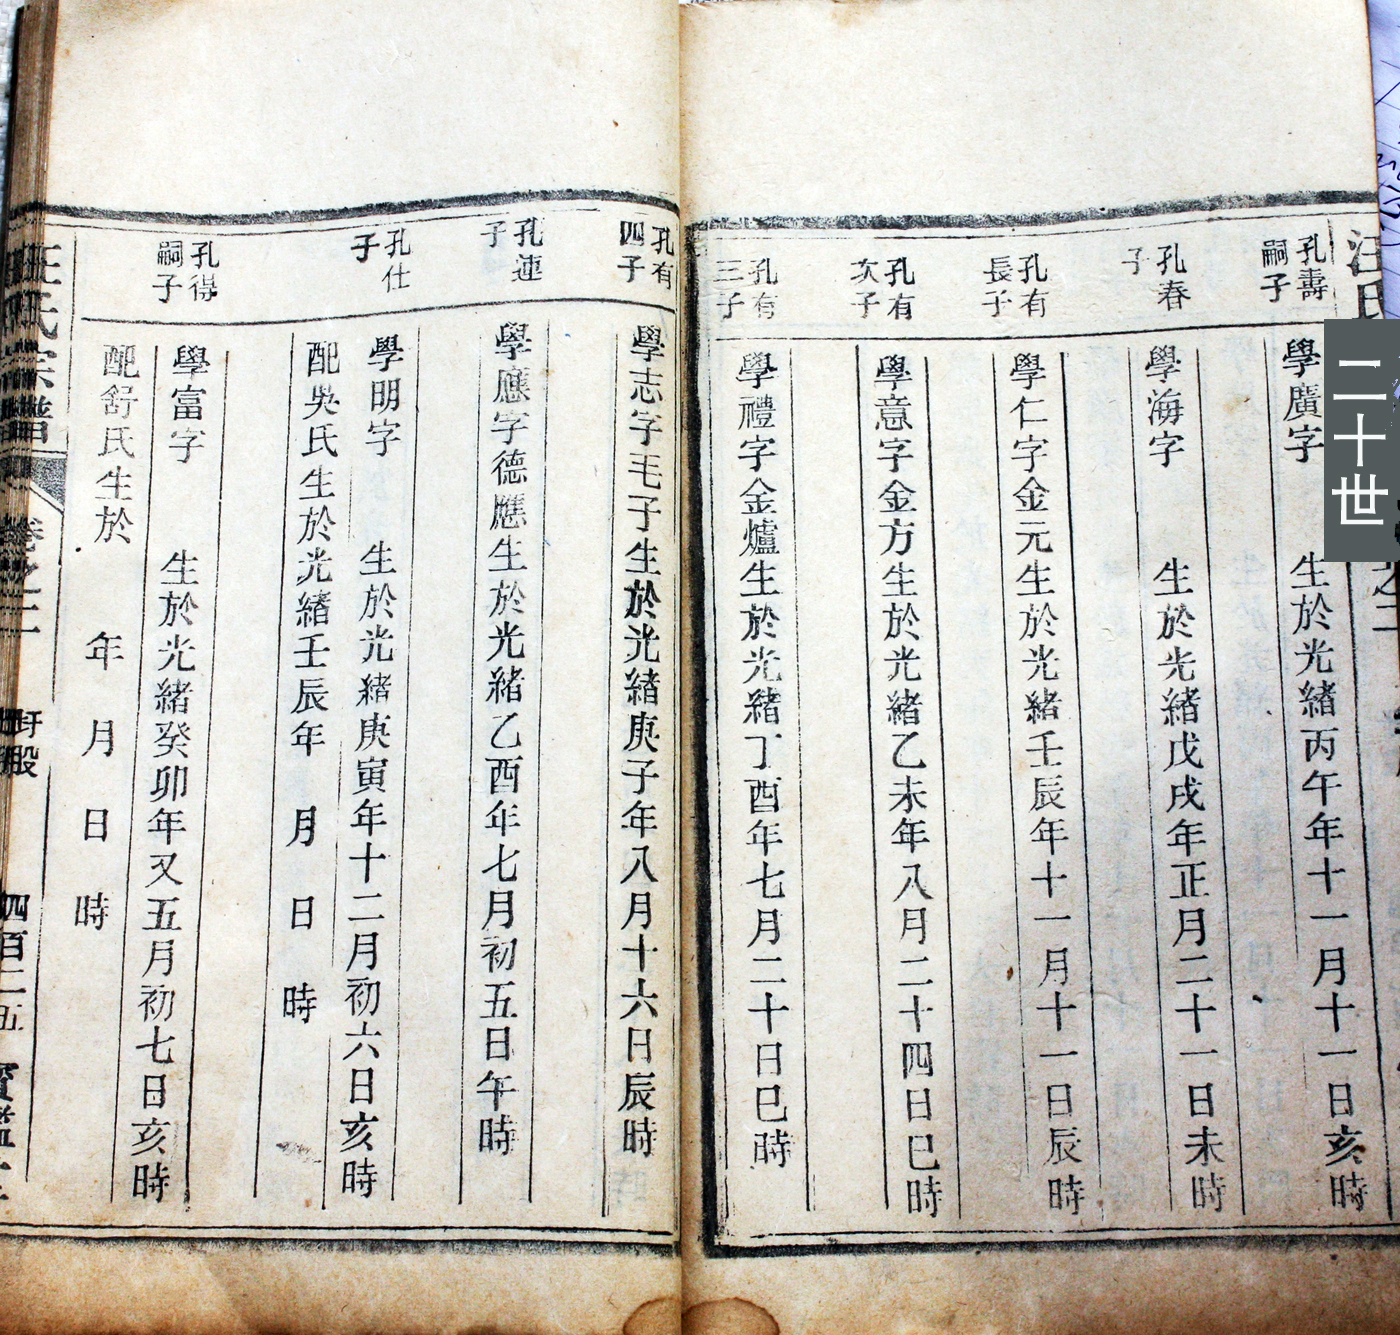 二十世
汪氏
孔壽
嗣子
學廣字 生於光緒丙午年十一月十一日亥時
孔春
子
學海字 生於光緒戊戌年正月二十一日未時
孔有
長子
學仁字金元生於光緒壬辰年十一月十一日辰時
孔有
次子
學意字金方生於光緒乙未年八月二十四日巳時
孔有
三子
學禮字金爐生於光緒丁酉年七月二十日巳時
孔有
四子
學志字毛子生於光緒庚子年八月十六日辰時
孔連
子
學應字德應生於光緒乙酉年七月初五日午時
孔仕
子
學明字 生於光緒庚寅年十二月初六日亥時
配吳氏生於光緒壬辰年 月 日 時
孔得
嗣子
學富字 生於光緒癸卯年又五月初七日亥時
配舒氏生於 年 月 日 時
汪氏宗譜 卷之二 四百二五